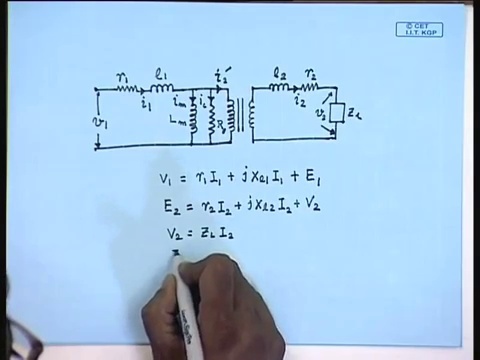 © CET
I.I.T. KGP
r₁ l₁ i₂′ l₂ r₂
i₁ iₘ i_c i₂
v₁ Lₘ v₂ Z_L
V₁ = r₁I₁ + jXₗ₁I₁ + E₁
E₂ = r₂I₂ + jXₗ₂I₂ + V₂
V₂ = Z_L I₂